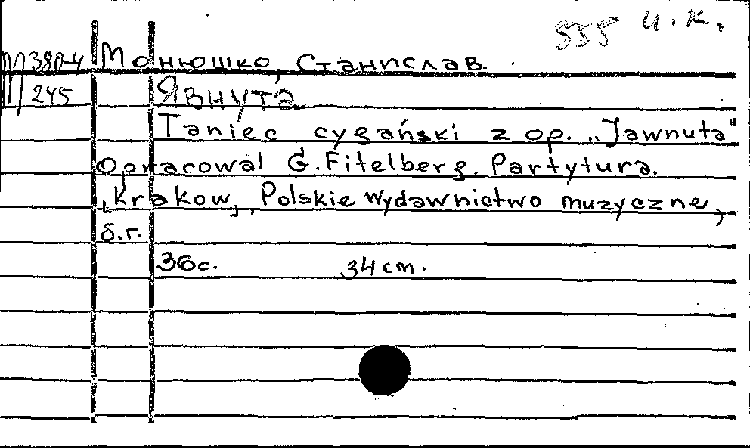 555 и.к.
Монюшко, Станислав.
245 Явнута
Taniec cygański z op. „Jawnuta"
opracował G. Fitelberg. Partytura.
Krakow, Polskie wydawnictwo muzyczne,
б.г.
36с. 34 cm.